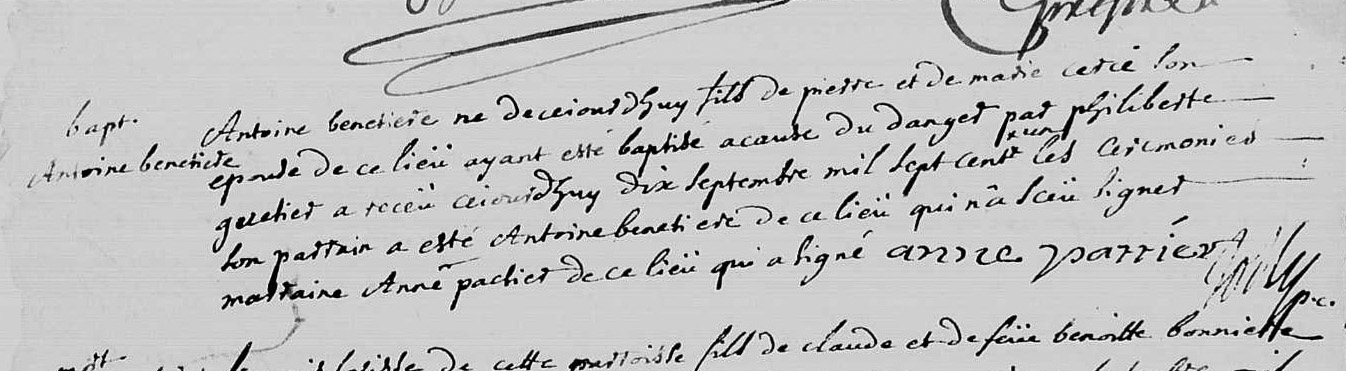 bapt.
Antoine benetiere
Antoine benetiere ne deceiourdhuy fils de pierre et de marie cerié son
epouse de ce lieü ayant esté baptisé acause du danger par philiberte
guetier a receü ceiourdhuy dix septembre mil sept cent un les ceremonies
son parrain a esté Antoine benetiere de ce lieü qui n'a sceü signer
marraine Anne partier de ce lieü qui a signé anne parrier
p.c.
de cette parroisse fils de claude et de feüe benoitte bonniette